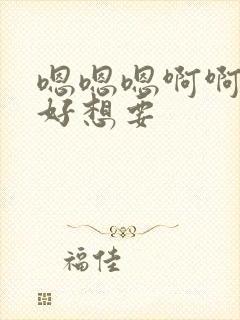 嗯嗯嗯啊啊
好想要
福佳